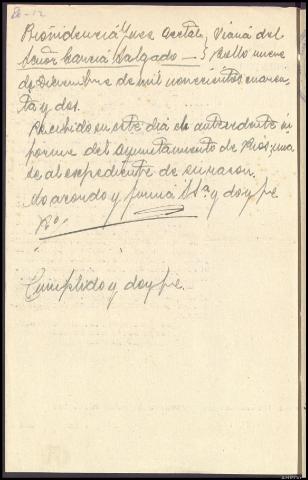 Providencia Juez acctal. } Viana del
Señor García Salgado — } Bollo nueve
de Diciembre de mil novecientos cuaren-
ta y dos.
Recibido en este dia el antecedente in-
forme del Ayuntamiento de Riós; una-
se al expediente de su razon.
Lo acordo y firma Sª. y doy fe
Cumplido y doy fe.